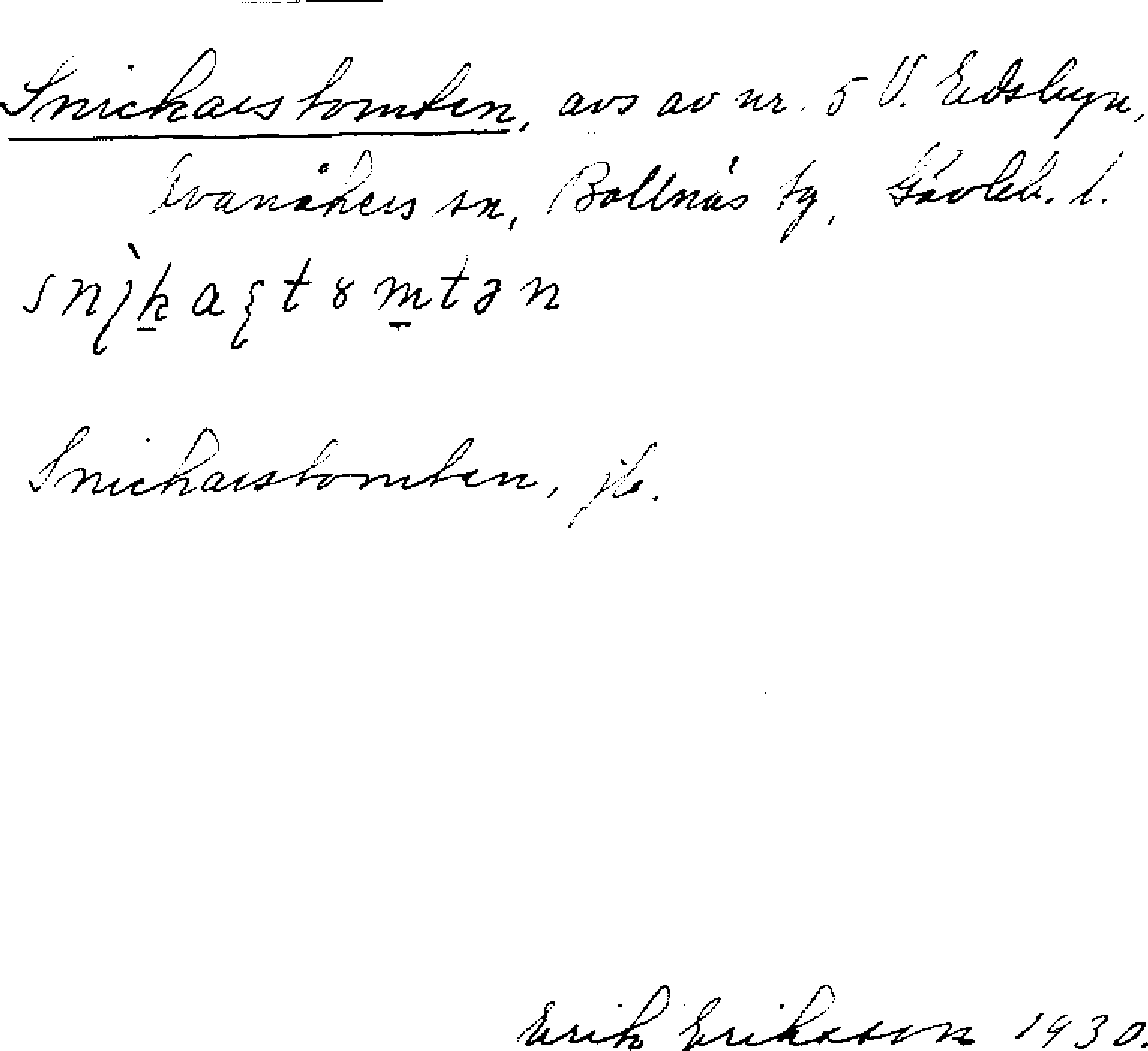 Snickarstomten, avs av nr. 5 V. Edsbyn,
Ovanåkers sn, Bollnäs tg, Gävleb. l.
Snickarstomten, jb.
Erik Eriksson 1930.